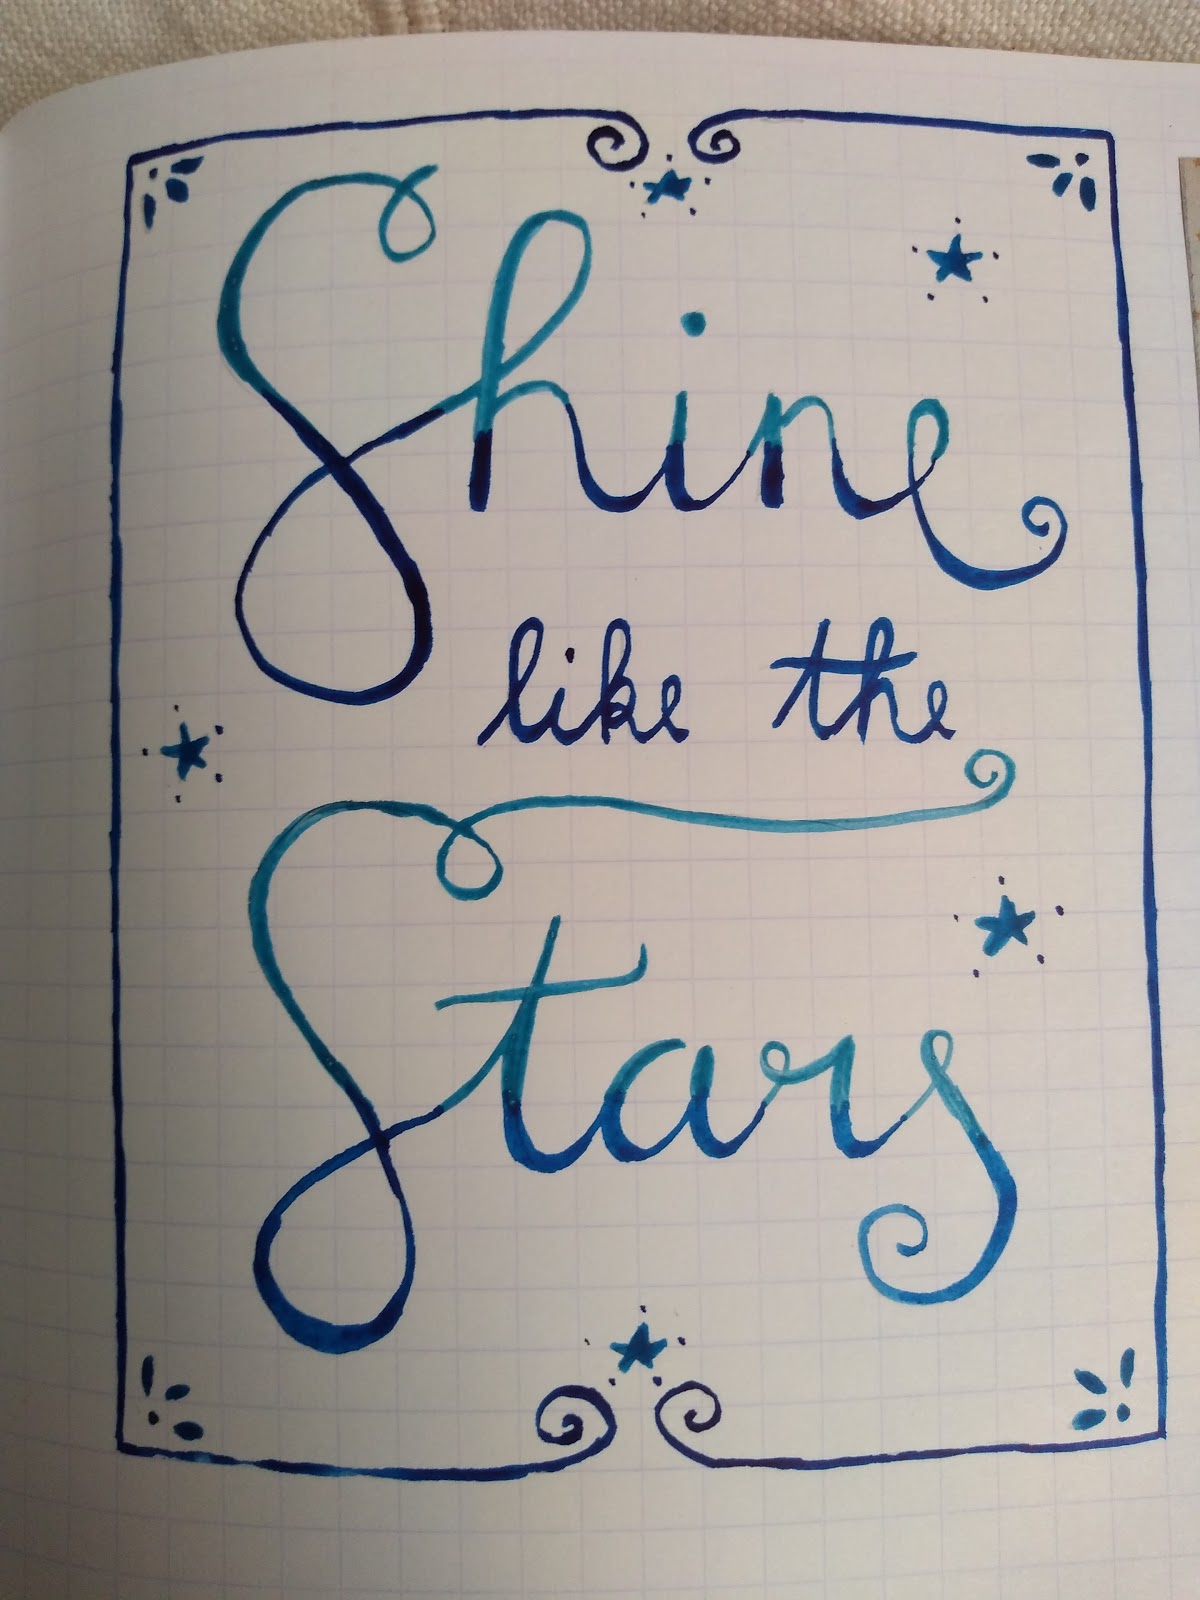 Shine
like the
Stars